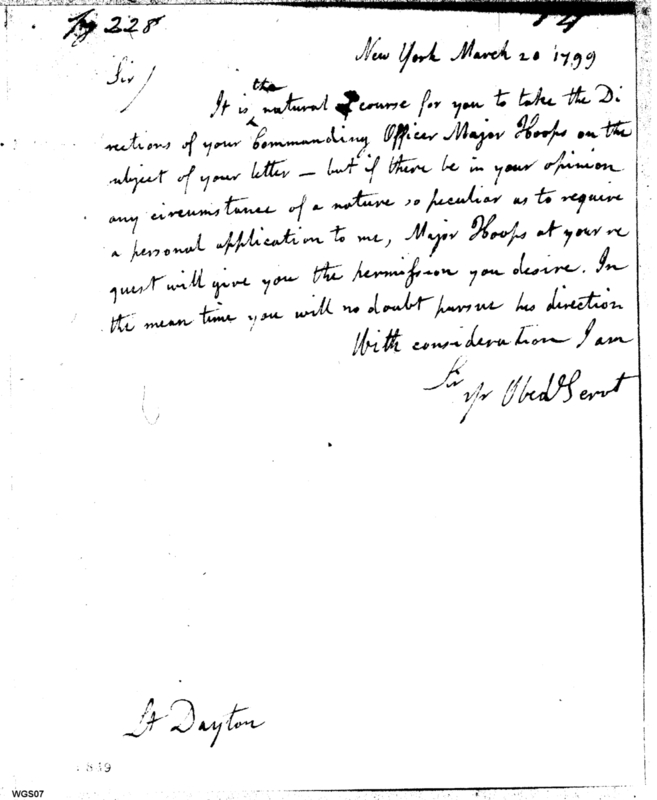 228
New York March 20 1799
Sir
It is the natural course for you to take the Di
rections of your Commanding Officer Major Hoops on the
subject of your letter — but if there be in your opinion
any circumstance of a nature so peculiar as to require
a personal application to me, Major Hoops at your re
quest will give you the permission you desire. In
the mean time you will no doubt pursue his direction
With consideration I am
Sir
Yr Obed Servt
Lt Dayton
WGS07